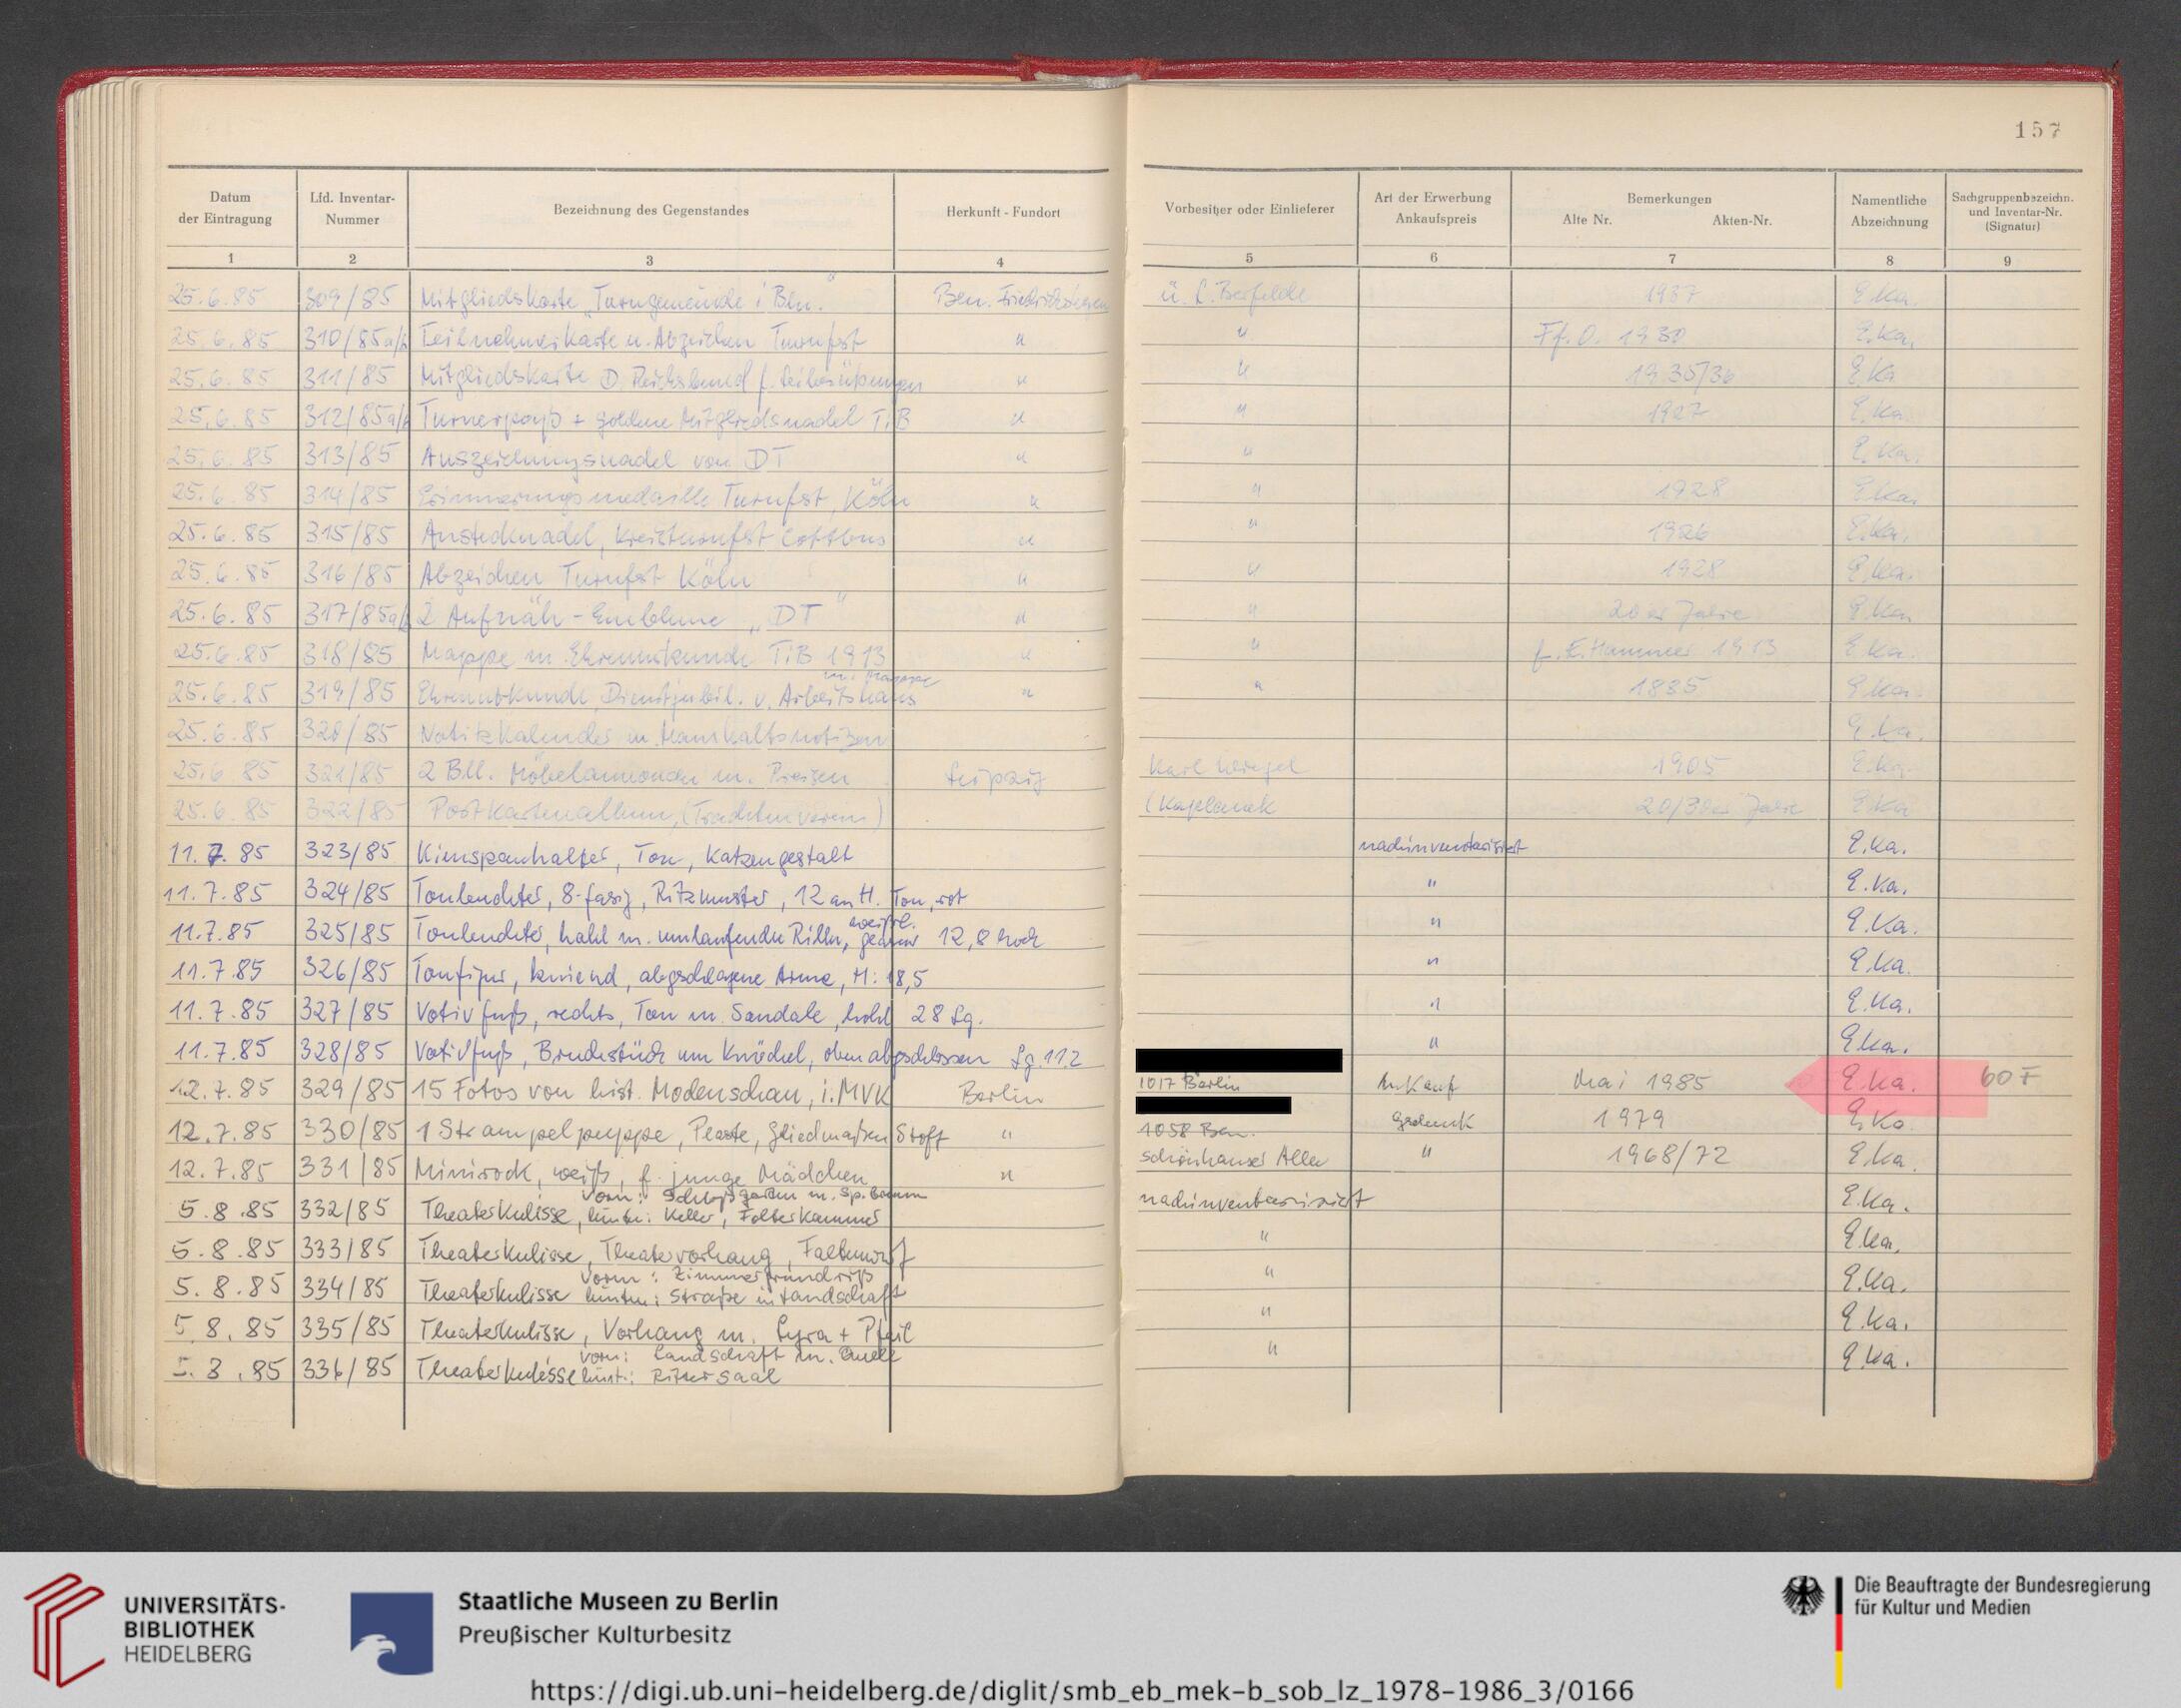 157
Datum der Eintragung | Lfd. Inventar-Nummer | Bezeichnung des Gegenstandes | Herkunft - Fundort | Vorbesitzer oder Einlieferer | Art der Erwerbung Ankaufspreis | Bemerkungen Alte Nr. Akten-Nr. | Namentliche Abzeichnung | Sachgruppenbezeichn. und Inventar-Nr. (Signatur)
1 2 3 4 5 6 7 8 9
25.6.85 309/85 Mitgliedskarte „Turngemeinde i Bln." Bln. Friedrichshagen 1937 E.Ka.
25.6.85 310/85a/b Teilnehmerkarte u. Abzeichen Turnfest " " Ff.O. 1930 E.Ka.
25.6.85 311/85 Mitgliedskarte D. Reichsbund f. Leibesübungen " " 1935/36 E.Ka
25.6.85 312/85a/b Turnerpaß + goldene Mitgliedsnadel TiB " " 1927 E.Ka.
25.6.85 313/85 Auszeichnungsnadel von DT " " E.Ka.
25.6.85 314/85 Erinnerungsmedaille Turnfest, Köln " " 1928 E.Ka.
25.6.85 315/85 Anstecknadel, Kreisturnfest Cottbus " " 1926 E.Ka.
25.6.85 316/85 Abzeichen Turnfest Köln " " 1928 E.Ka.
25.6.85 317/85a/b 2 Aufnäh-Embleme „DT" " " 20er Jahre E.Ka.
25.6.85 318/85 Mappe m. Ehrenurkunde TiB 1913 " " f. E. Hammer 1913 E.Ka.
25.6.85 319/85 Ehrenurkunde, Dienstjubil. v. Arbeitshaus m. Mappe " " 1885 E.Ka.
25.6.85 320/85 Notizkalender m. Haushaltsnotizen E.Ka.
25.6.85 321/85 2 Bll. Möbelannonce m. Preisen Leipzig Karl 1905 E.Ka.
25.6.85 322/85 Postkartenalbum, (Trachtenverein) 20/30er Jahre E.Ka
11.7.85 323/85 Kienspanhalter, Ton, Katzengestalt nachinventarisiert E.Ka.
11.7.85 324/85 Tonleuchter, 8-fasig, Ritzmuster, 12 cm H. Ton, rot " E.Ka.
11.7.85 325/85 Tonleuchter, hohl m. umlaufenden Rillen, weißl. 12,8 hoch " E.Ka.
11.7.85 326/85 Tonfigur, kniend, abgeschlagene Arme, H: 18,5 " E.Ka.
11.7.85 327/85 Votivfuß, rechts, Ton m. Sandale, hohl 28 Lg. " E.Ka.
11.7.85 328/85 Votivfuß, Bruchstück um Knöchel, oben abgeschlossen Lg. 11,2 " E.Ka.
12.7.85 329/85 15 Fotos von hist. Modenschau, i. MVK Berlin 1017 Berlin Ankauf Mai 1985 E.Ka. 60 F
12.7.85 330/85 1 Strampelpuppe, Plaste, Gliedmaßen Stoff " 1058 Bln. Geschenk 1979 E.Ka.
12.7.85 331/85 Minirock, weiß, f. junge Mädchen " Schönhauser Allee " 1968/72 E.Ka.
5.8.85 332/85 Theaterkulisse, vorn: Schloßgarten m. Sp.brunnen hinten: Keller, Folterkammer nachinventarisiert E.Ka.
5.8.85 333/85 Theaterkulisse, Theatervorhang, Faltenwurf " E.Ka.
5.8.85 334/85 Theaterkulisse vorn: Zimmergrundriß hinten: Straße in Landschaft " E.Ka.
5.8.85 335/85 Theaterkulisse, Vorhang m. Lyra + Pfeil " E.Ka.
5.8.85 336/85 Theaterkulisse vorn: Landschaft m. Quelle hint.: Rittersaal " E.Ka.
UNIVERSITÄTS-
BIBLIOTHEK
HEIDELBERG
Staatliche Museen zu Berlin
Preußischer Kulturbesitz
Die Beauftragte der Bundesregierung
für Kultur und Medien
https://digi.ub.uni-heidelberg.de/diglit/smb_eb_mek-b_sob_lz_1978-1986_3/0166